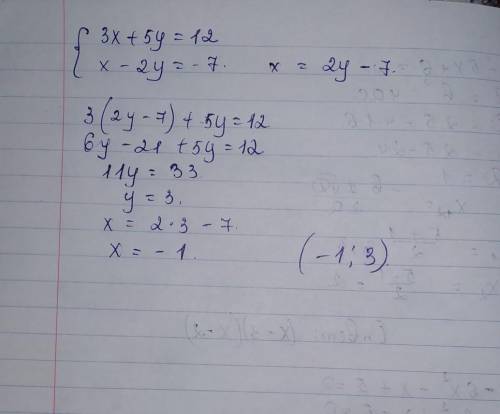 3x + 5y = 12
x - 2y = -7. x = 2y - 7.
3(2y - 7) + 5y = 12
6y - 21 + 5y = 12
11y = 33
y = 3.
x = 2·3 - 7.
x = -1. (-1; 3)